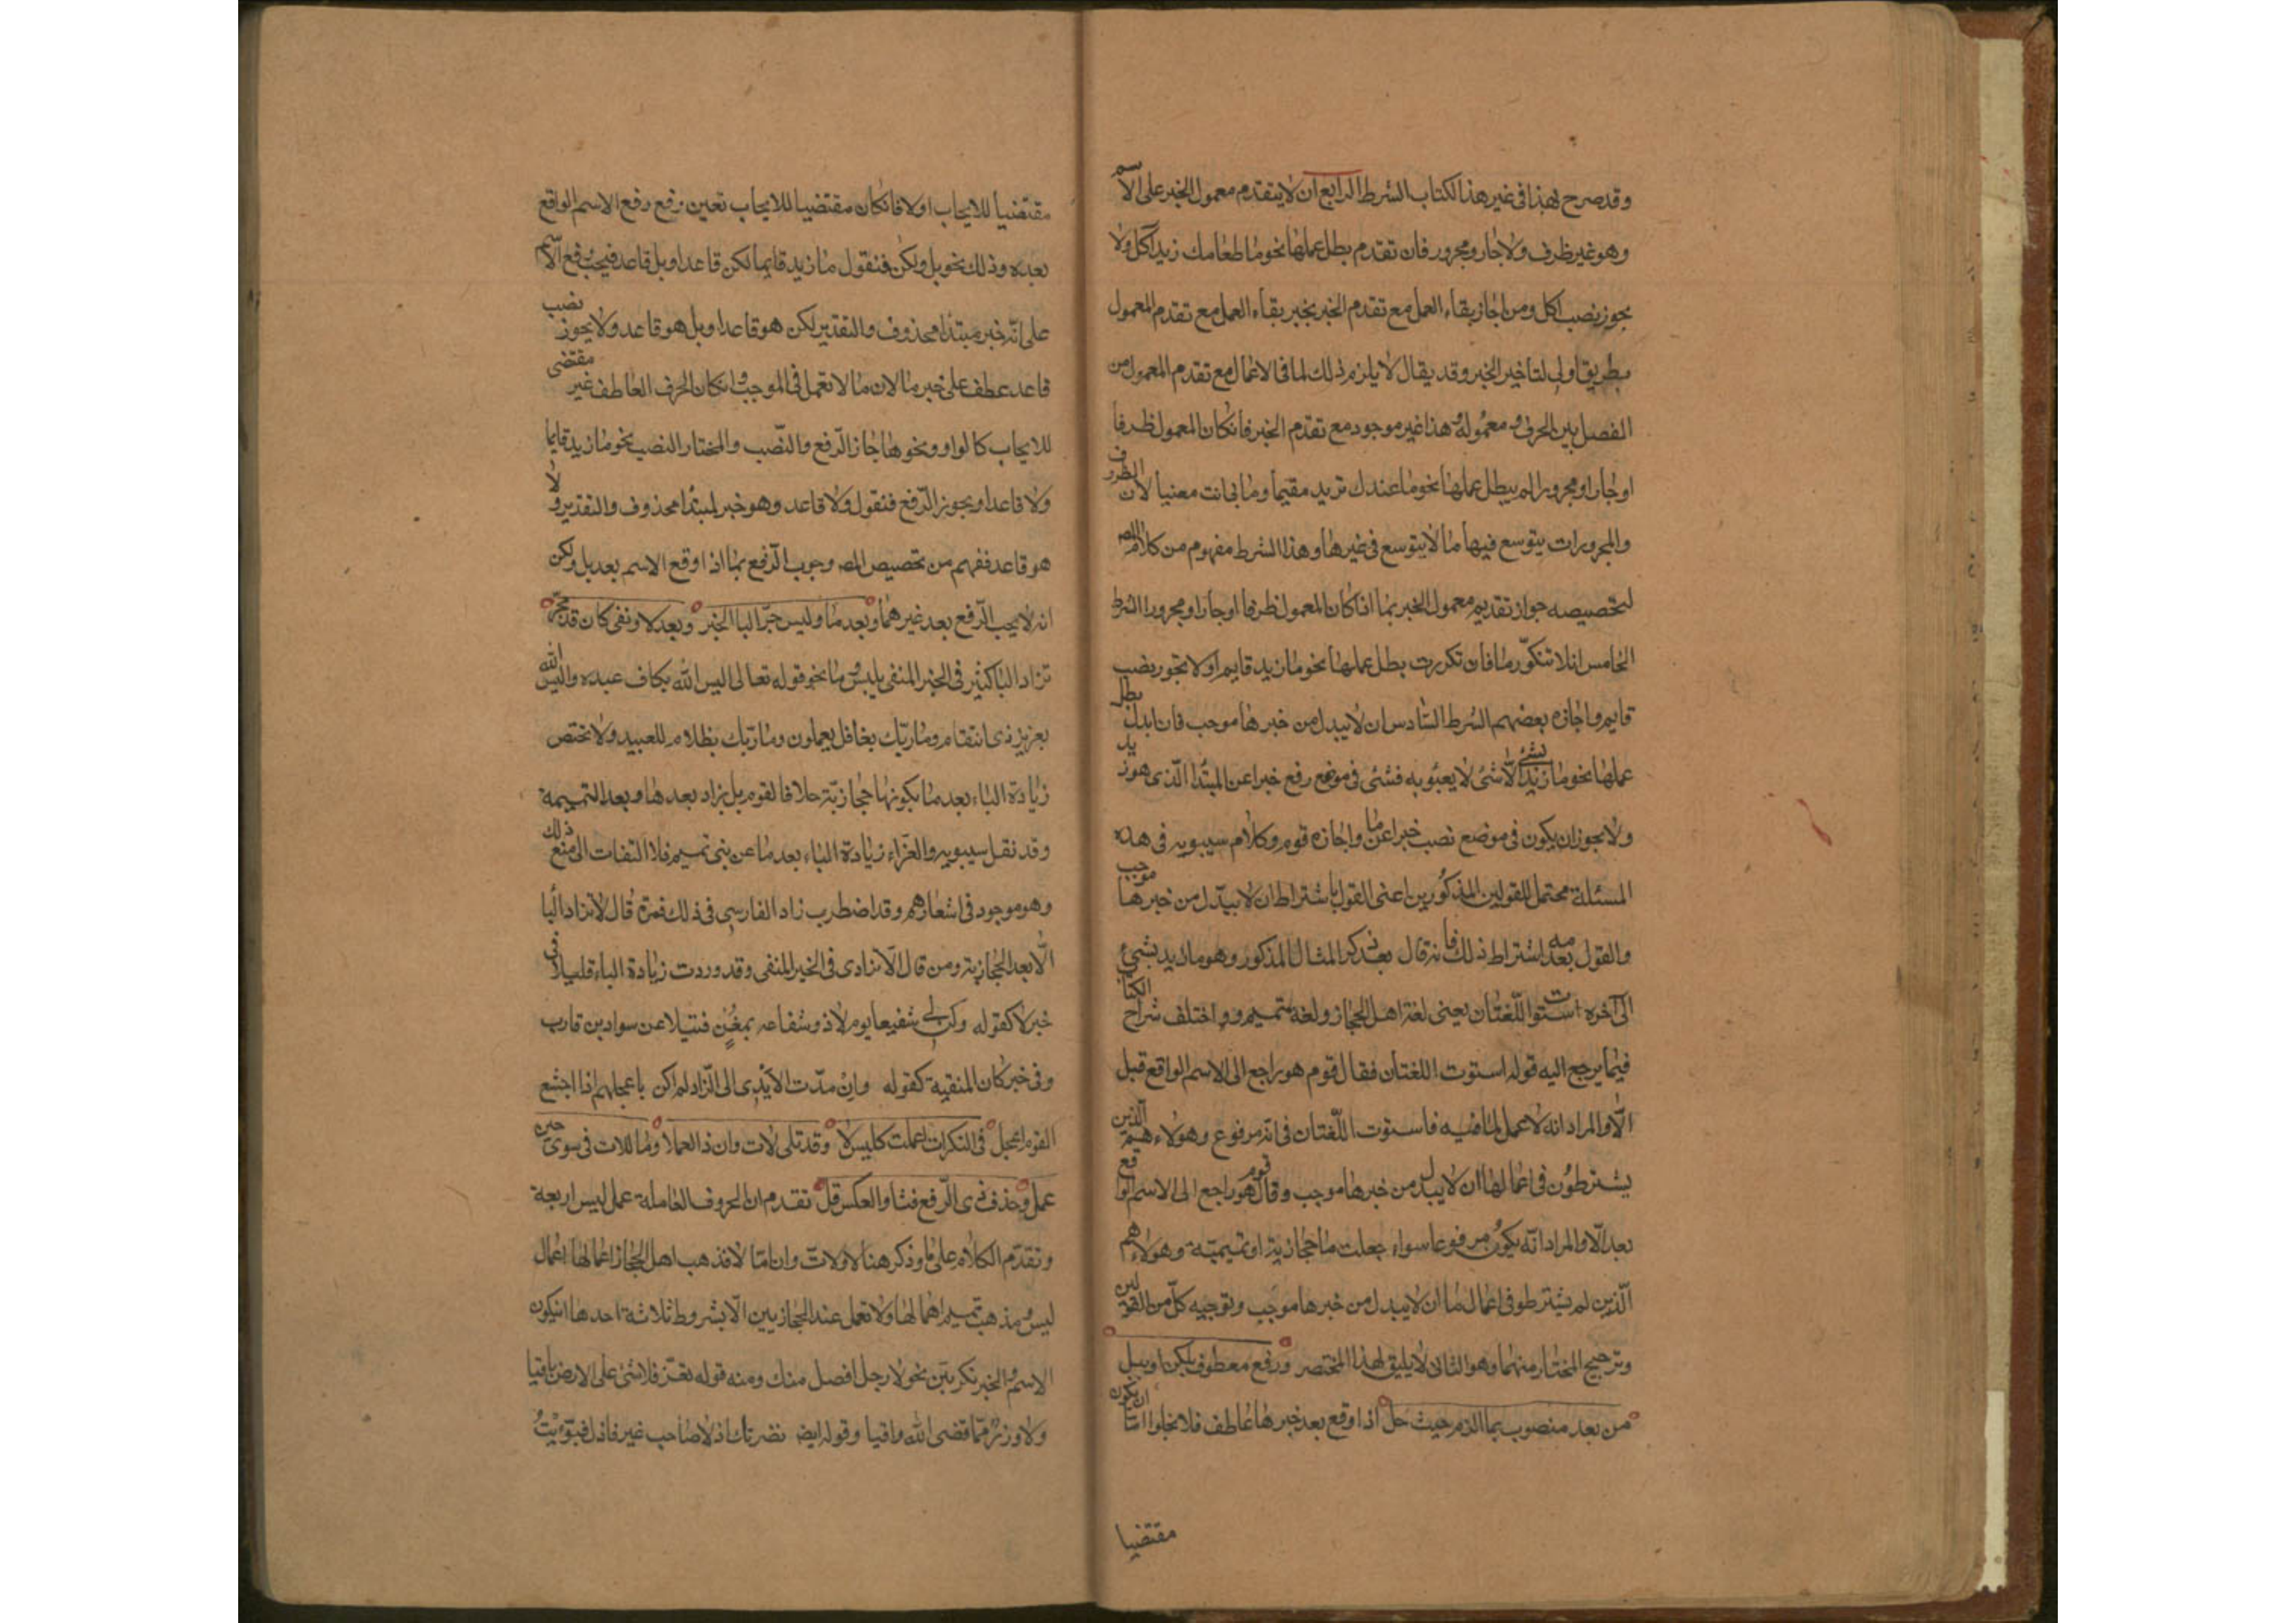 وقد صرح بهذا فى غير هذا الكتاب الشرط الرابع ان لا يتقدم معمول الخبر على الاسم
وهو غير ظرف ولا جار ومجرور فان تقدم بطل عملها نحو ما طعامك زيد اكل ولا
يجوز نصب اكل ومن اجاز بقاء العمل مع تقدم الخبر يجيز بقاء العمل مع تقدم المعمول
بطريق اولى لتاخير الخبر وقد يقال لا يلزم ذلك لما فى الاعمال مع تقدم المعمول من
الفصل بين الحرف ومعموله وهذا غير موجود مع تقدم الخبر فانكان المعمول ظرفا
او جارا ومجرورا لم يبطل عملها نحو ما عندك زيد مقيما وما بى انت معنيا لان الظروف
والمجرورات يتوسع فيها ما لا يتوسع فى غيرها وهذا الشرط مفهوم من كلام المص
لتخصيصه جواز تقديم معمول الخبر بما اذا كان المعمول ظرفا او جارا ومجرورا الشرط
الخامس ان لا تتكرر ما فان تكررت بطل عملها نحو ما زيد قايم ولا يجوز نصب
قايم واجازه بعضهم الشرط السادس ان لا يبدل من خبرها موجب فان ابدل بطل
عملها نحو ما زيد بشئ الا شئ لا يعبؤ به فشئ فى موضع رفع خبرا عن المبتدا الذى هو زيد
ولا يجوز ان يكون فى موضع نصب خبرا عن ما واجازه قوم وكلام سيبويه فى هذه
المسئلة محتمل للقولين المذكورين اعنى القول باشتراط ان لا يبدل من خبرها موجب
والقول بعدم اشتراط ذلك فانه قال بعد ذكر المثال المذكور وهو ما زيد بشئ
الى آخره استوت اللغتان يعنى لغة اهل الحجاز ولغة تميم واختلف شراح الكتاب
فيما يرجع اليه قوله استوت اللغتان فقال قوم هو راجع الى الاسم الواقع قبل
الا والمراد انه لا عمل لما فيه فاستوت اللغتان فى انه مرفوع وهولاء هم الذين
يشترطون فى اعمال ما ان لا يبدل من خبرها موجب وقال قوم هو راجع الى الاسم الواقع
بعد الا والمراد انه يكون مرفوعا سواء جعلت ما حجازية او تميمية وهولاء هم
الذين لم يشترطوا فى اعمال ما ان لا يبدل من خبرها موجب وتوجيه كل من القولين
وترجيح المختار منهما وهو الثانى لا يليق لهذا المختصر ورفع معطوف بلكن او ببل
من بعد منصوب بما الزم حيث حل اذا وقع بعد خبرها عاطف فلا يخلوا اما ان يكون
مقتضيا
مقتضيا للايجاب او لا فانكان مقتضيا للايجاب تعين رفع رفع الاسم الواقع
بعده وذلك نحو بل ولكن فنقول ما زيد قايما لكن قاعد او بل قاعد فيجب رفع الاسم
على انه خبر مبتدا محذوف والتقدير لكن هو قاعد او بل هو قاعد ولا يجوز نصب
قاعد عطف على خبر ما لان ما لا تعمل فى الموجب وانكان الحرف العاطف غير مقتضى
للايجاب كالواو ونحوها جاز الرفع والنصب والمختار النصب نحو ما زيد قايما
ولا قاعدا ويجوز الرفع فنقول ولا قاعد وهو خبر لمبتدا محذوف والتقدير ولا
هو قاعد ففهم من تخصيص المص وجوب الرفع بما اذا وقع الاسم بعد بل ولكن
انه لا يجب الرفع بعد غيرهما وبعد ما وليس جر البا الخبر وبعد لا ونفى كان قد يجر
تزاد البا كثير فى الخبر المنفى بليس وما نحو قوله تعالى اليس الله بكاف عبده واليس الله
بعزيز ذى انتقام وما ربك بغافل يعملون وما ربك بظلام للعبيد ولا تختص
زيادة الباء بعد ما بكونها حجازية خلافا لقوم بل يزاد بعدها وبعد التميمية
وقد نقل سيبويه والفراء زيادة الباء بعد ما عن بنى تميم فلا التفات الى منع ذلك
وهو موجود فى اشعارهم وقد اضطرب زاد الفارسى فى ذلك فمرة قال لا تزاد البا
الا بعد الحجازية ومن قال الا تزادى فى الخبر المنفى وقد وردت زيادة الباء قليلا فى
خبر لا كقوله وكن لى شفيعا يوم لا ذو شفاعه بمغن فتيلا عن سواد بن قارب
وفى خبر كان المنقية كقوله وان مدت الايدى الى الزاد لم اكن باعجلهم اذا اجشع
القوم اعجل فى النكرات اعملت كليس لا وقد تلى لات وان ذا العملا وما للات فى سوى حين
عمل وحذف ذى الرفع فشا والعكس قل تقدم ان الحروف العاملة عمل ليس اربعة
وتقدم الكلام على ما وذكر هنا لا ولات وان اما لا فذهب اهل الحجاز اعمالها اعمال
ليس ومذهب تميم اهمالها ولا تعمل عند الحجازيين الا بشروط ثلاثة احدها ان يكون
الاسم والخبر نكرتين نحو لا رجل افضل منك ومنه قوله تعز فلا شئ على الارض باقيا
ولا وزر مما قضى الله واقيا وقوله ايضا نصرتك اذ لا صاحب غير خاذل فبوئت